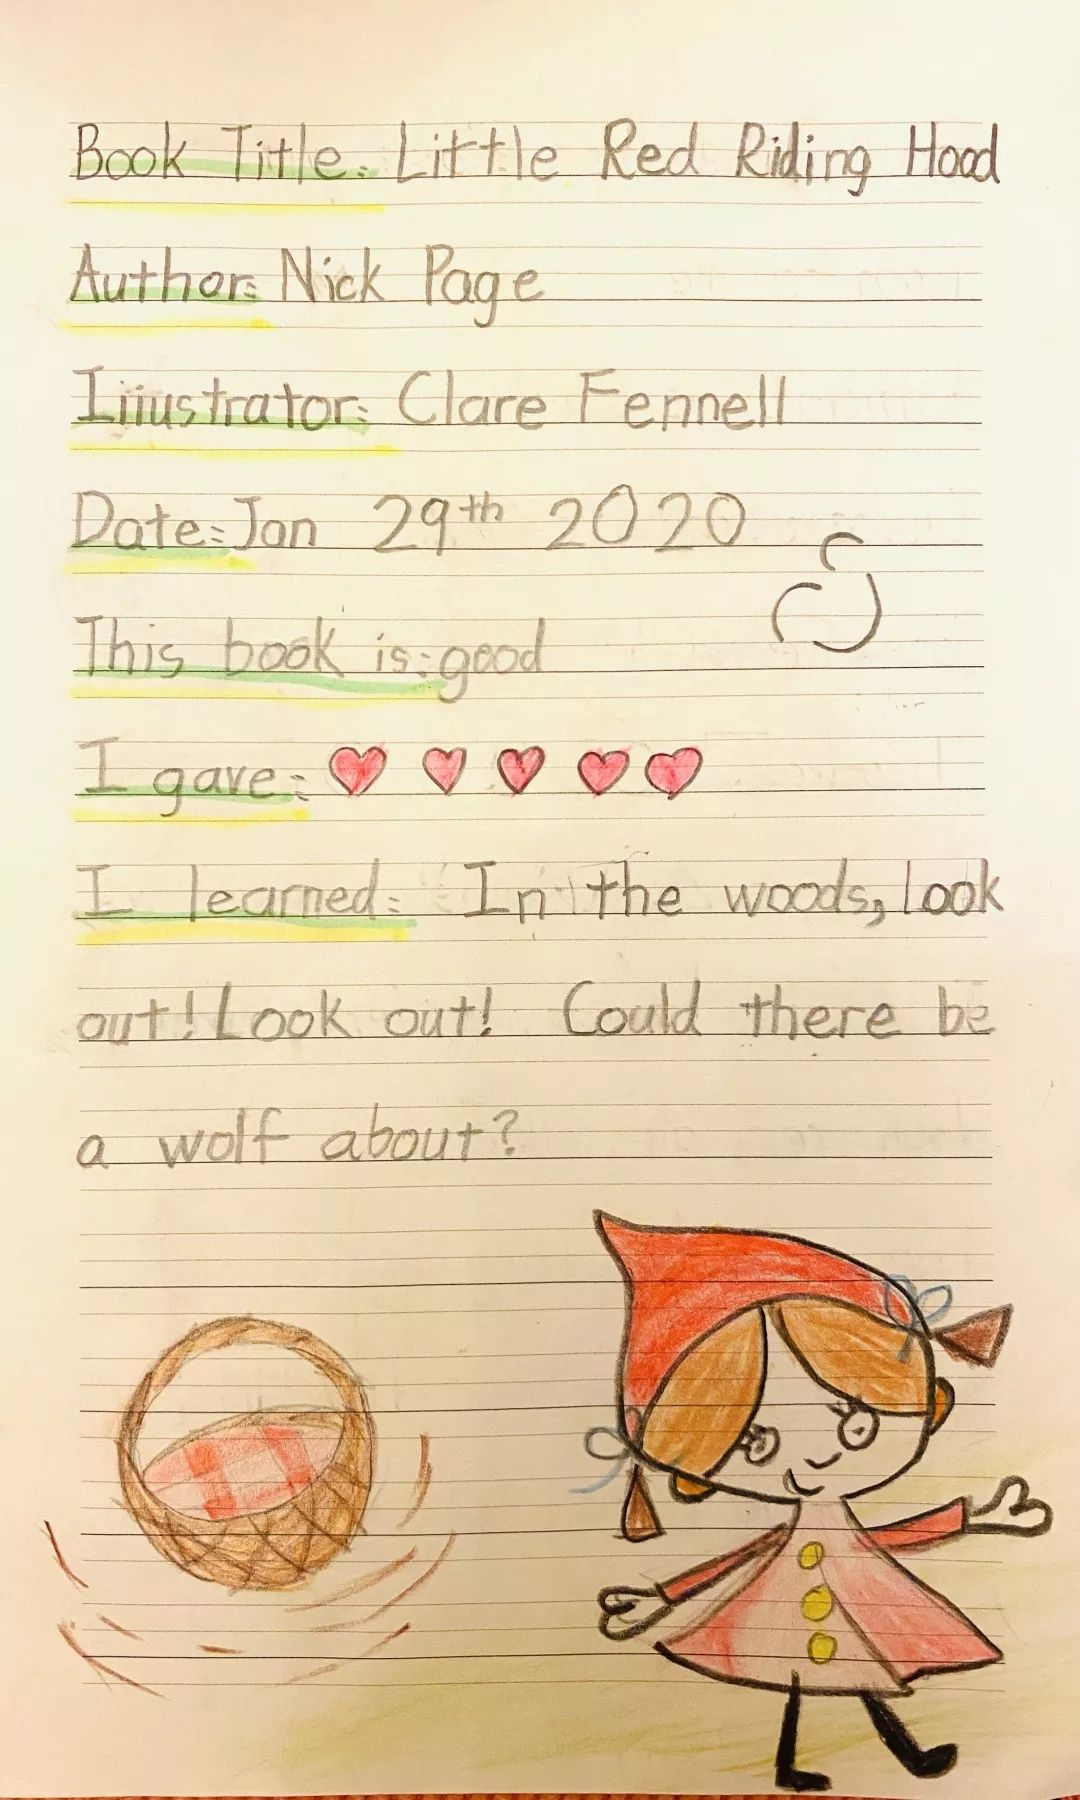 Book Title: Little Red Riding Hood
Author: Nick Page
Iiiustrator: Clare Fennell
Date: Jan 29th 2020
This book is: good
I gave: ♥ ♥ ♥ ♥ ♥
I learned: In the woods, look
out! Look out! Could there be
a wolf about?